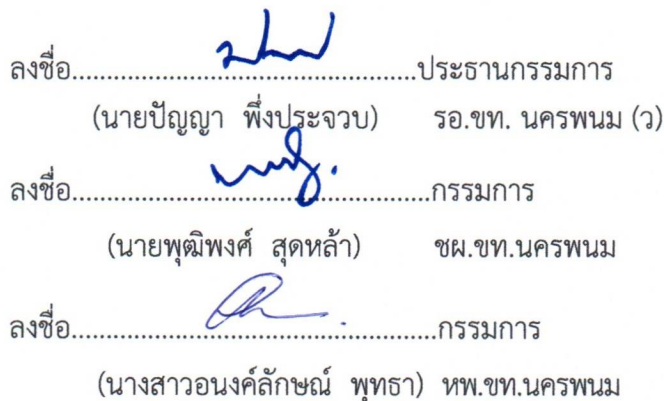 ลงชื่อ................................................ประธานกรรมการ
(นายปัญญา พึ่งประจวบ) รอ.ขท. นครพนม (ว)
ลงชื่อ..................................................กรรมการ
(นายพุฒิพงศ์ สุดหล้า) ชผ.ขท.นครพนม
ลงชื่อ...................................................กรรมการ
(นางสาวอนงค์ลักษณ์ พุทธา) หพ.ขท.นครพนม